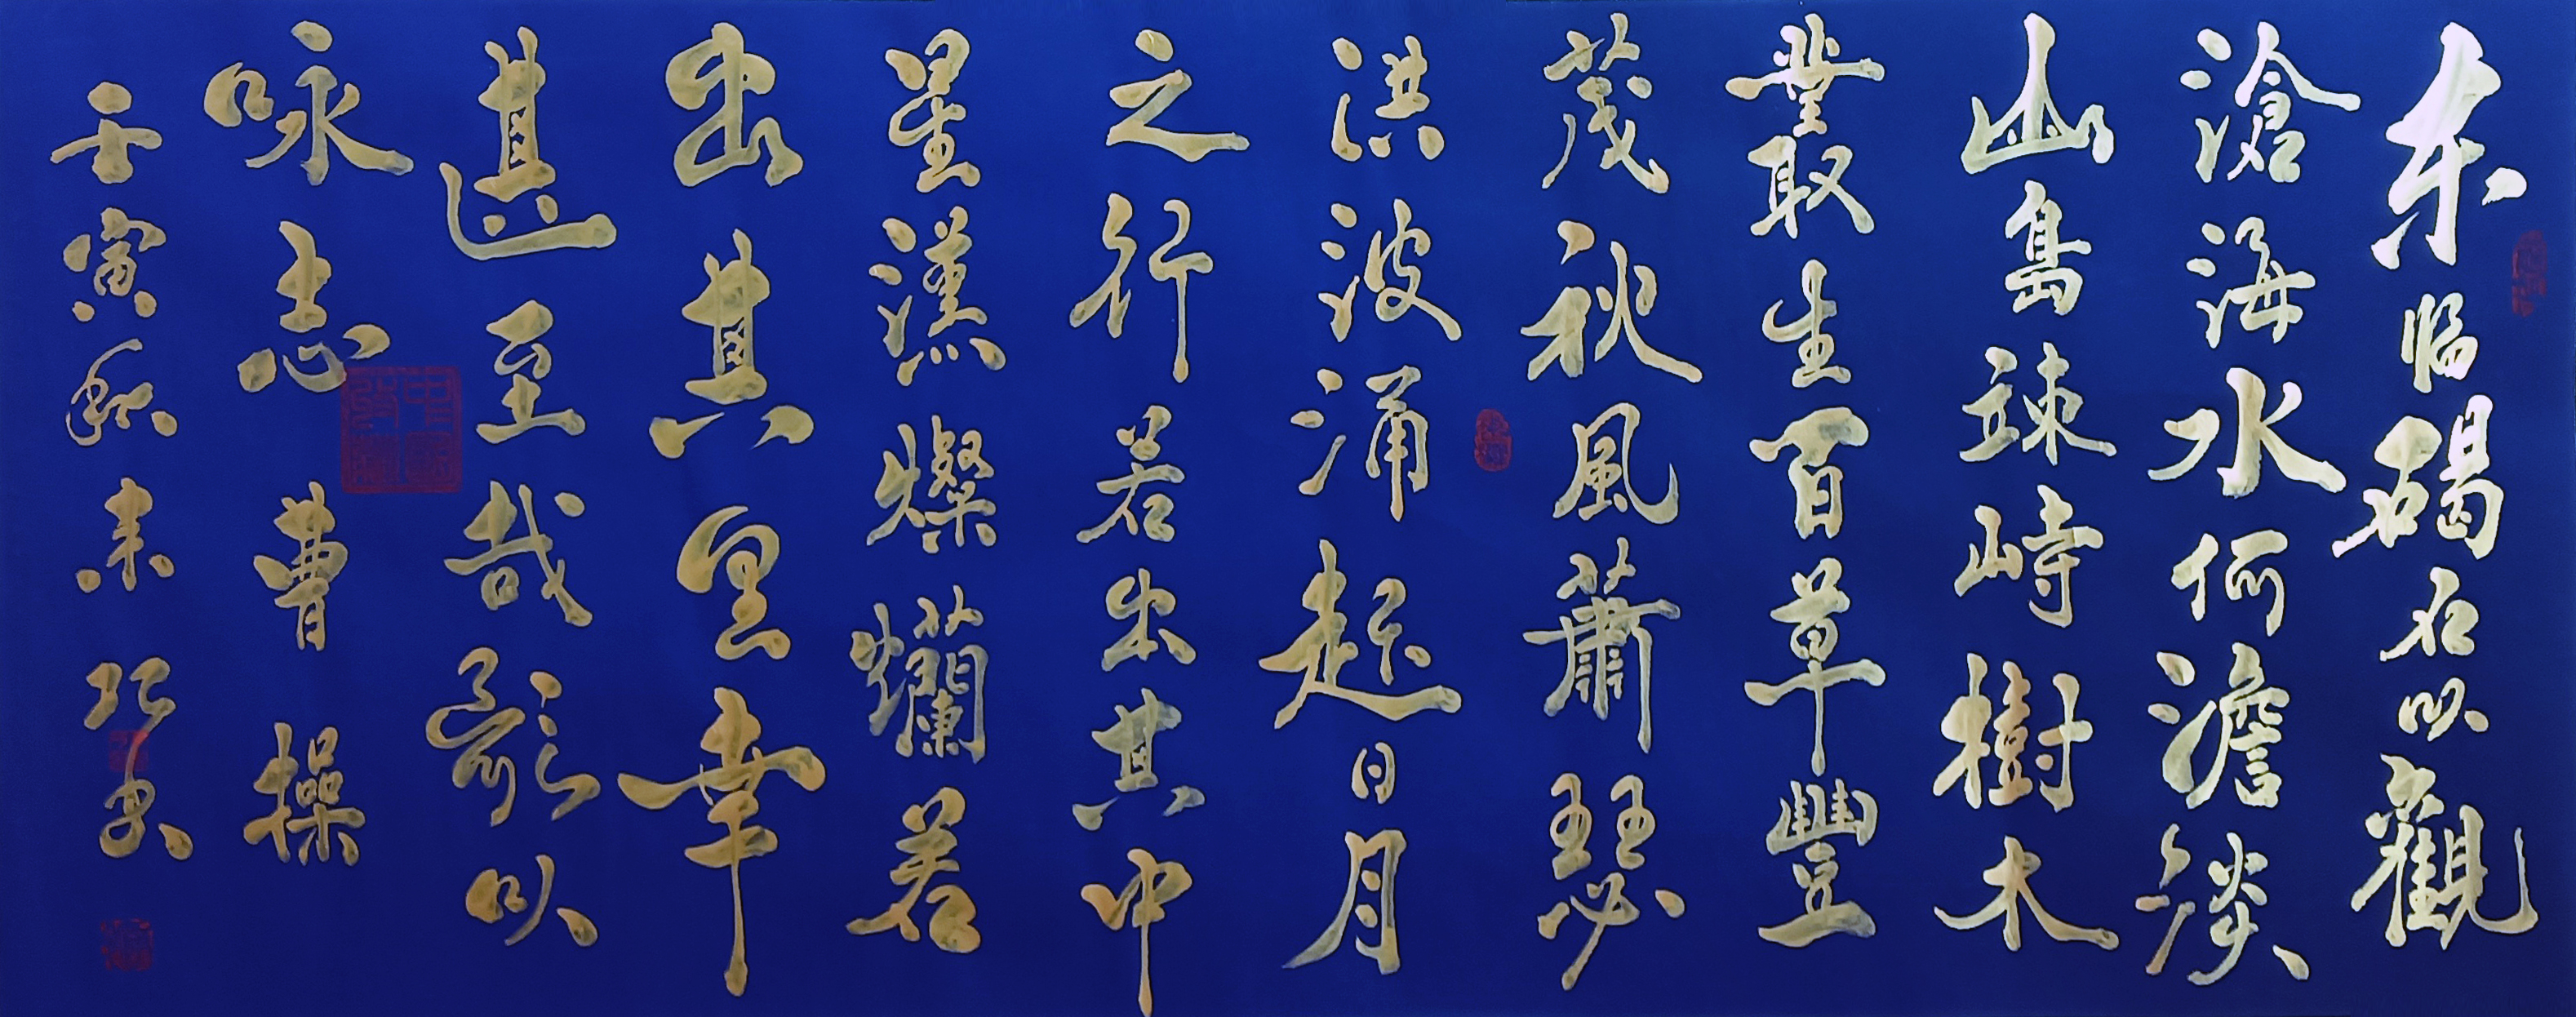 东临碣石以觀
滄海水何澹淡
山島竦峙樹木
叢取生百草豐
茂秋風蕭瑟
洪波涌起日月
之行若出其中
星漢燦爛若
出其里幸
甚至哉歌以
咏志曹操
壬寅秋末